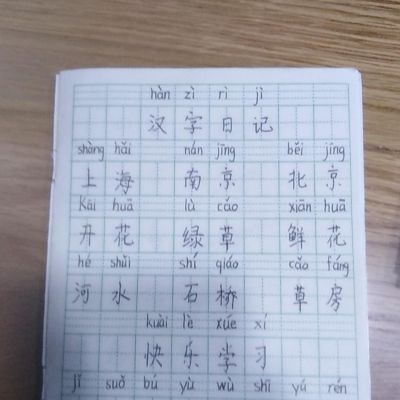 hàn zì rì jì
汉字日记
shàng hǎi nán jīng běi jīng
上海 南京 北京
Kāi huā lǜ cǎo xiān huā
开花 绿草 鲜花
hé shuǐ shí qiáo cǎo fáng
河水 石桥 草房
kuài lè xué xí
快乐学习
jǐ suǒ bú yù wù shī yú rén